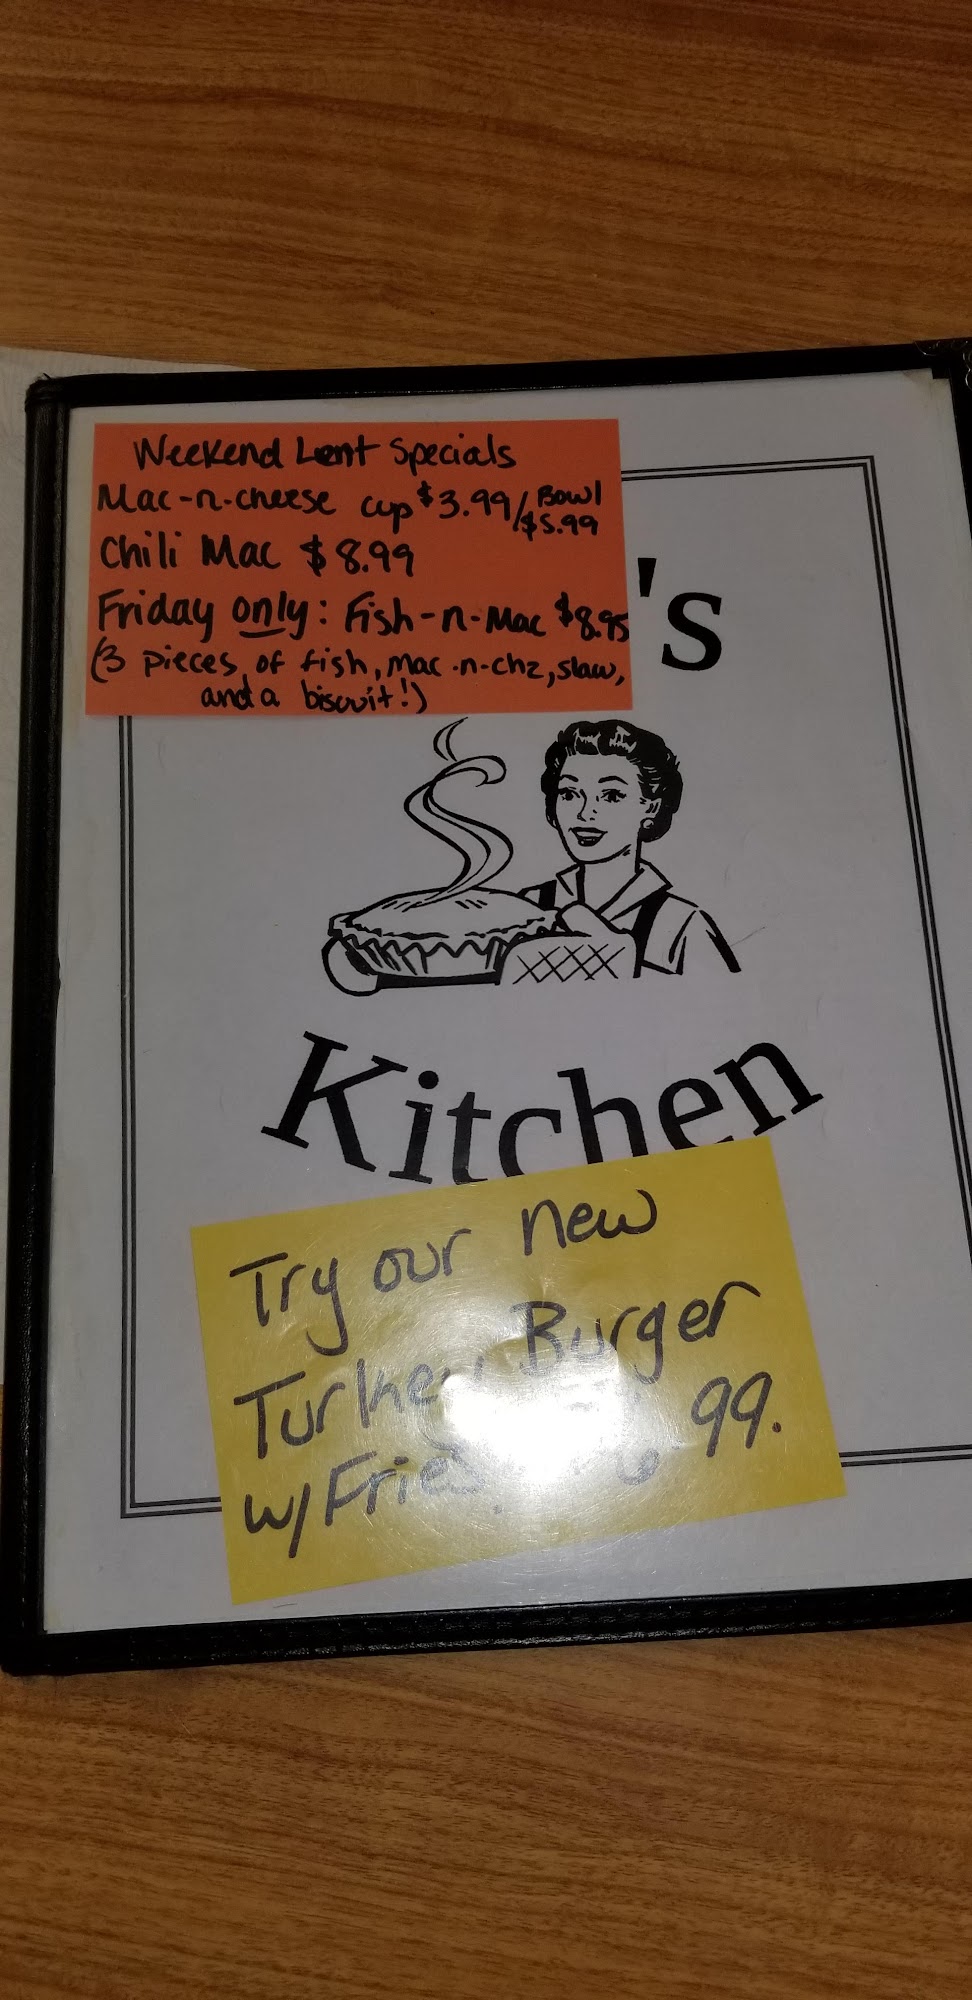 Weekend Lent Specials
Mac-n-cheese cup $3.99/Bowl $5.99
Chili Mac $8.99
Friday only: Fish-n-Mac $8.95
(3 pieces of fish, mac-n-chz, slaw,
and a biscuit!)
's
Kitchen
Try our new
Turkey Burger
w/Fries. 6.99.